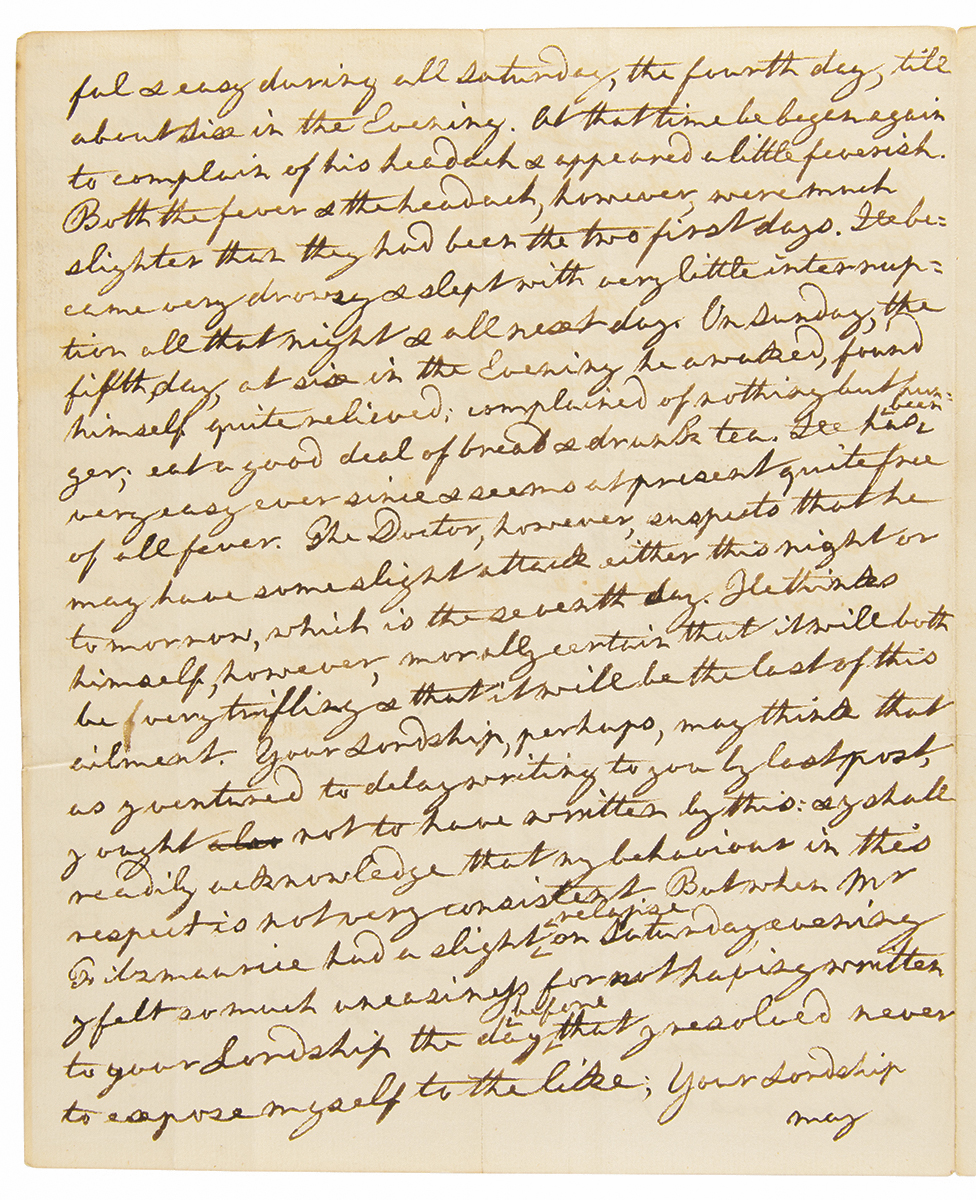 ful & easy during all saturday, the fourth day, till
about six in the Evening. At that time he began again
to complain of his headach & appeared a little feverish.
Both the fever & the headach, however, were much
slighter than they had been the two first days. He be=
came very drowsy & slept with very little interrup=
tion all that night & all next day. On Sunday, the
fifth day, at six in the Evening he awaked, found
himself quite relieved; complained of nothing but hun=
ger; eat a good deal of bread & drunk tea. He has been
very easy ever since & seems at present quite free
of all fever. The Doctor, however, suspects that he
may have some slight attack either this night or
tomorrow, which is the seventh day. He thinks
himself, however, morally certain that it will both
be very trifling & that it will be the last of this
ailment. Your Lordship, perhaps, may think that
as I ventured to delay writing to you by last post,
I ought also not to have written by this: & I shall
readily acknowledge that my behaviour in this
respect is not very consistent. But when Mr
Fitzmaurice had a slight relapse on Saturday evening
I felt so much uneasiness for not having written
to your Lordship the day before that I resolved never
to expose myself to the like; Your Lordship
may